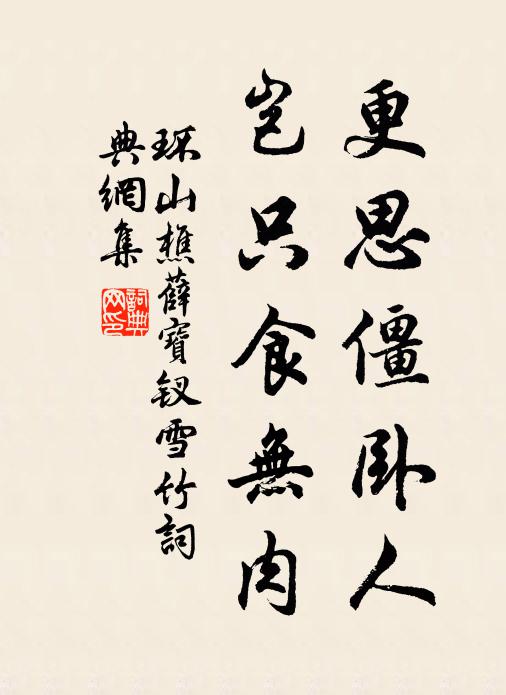 更思僵卧人
豈只食無肉
環山樵薛寶釵雪竹詞
典網集
詞典網印